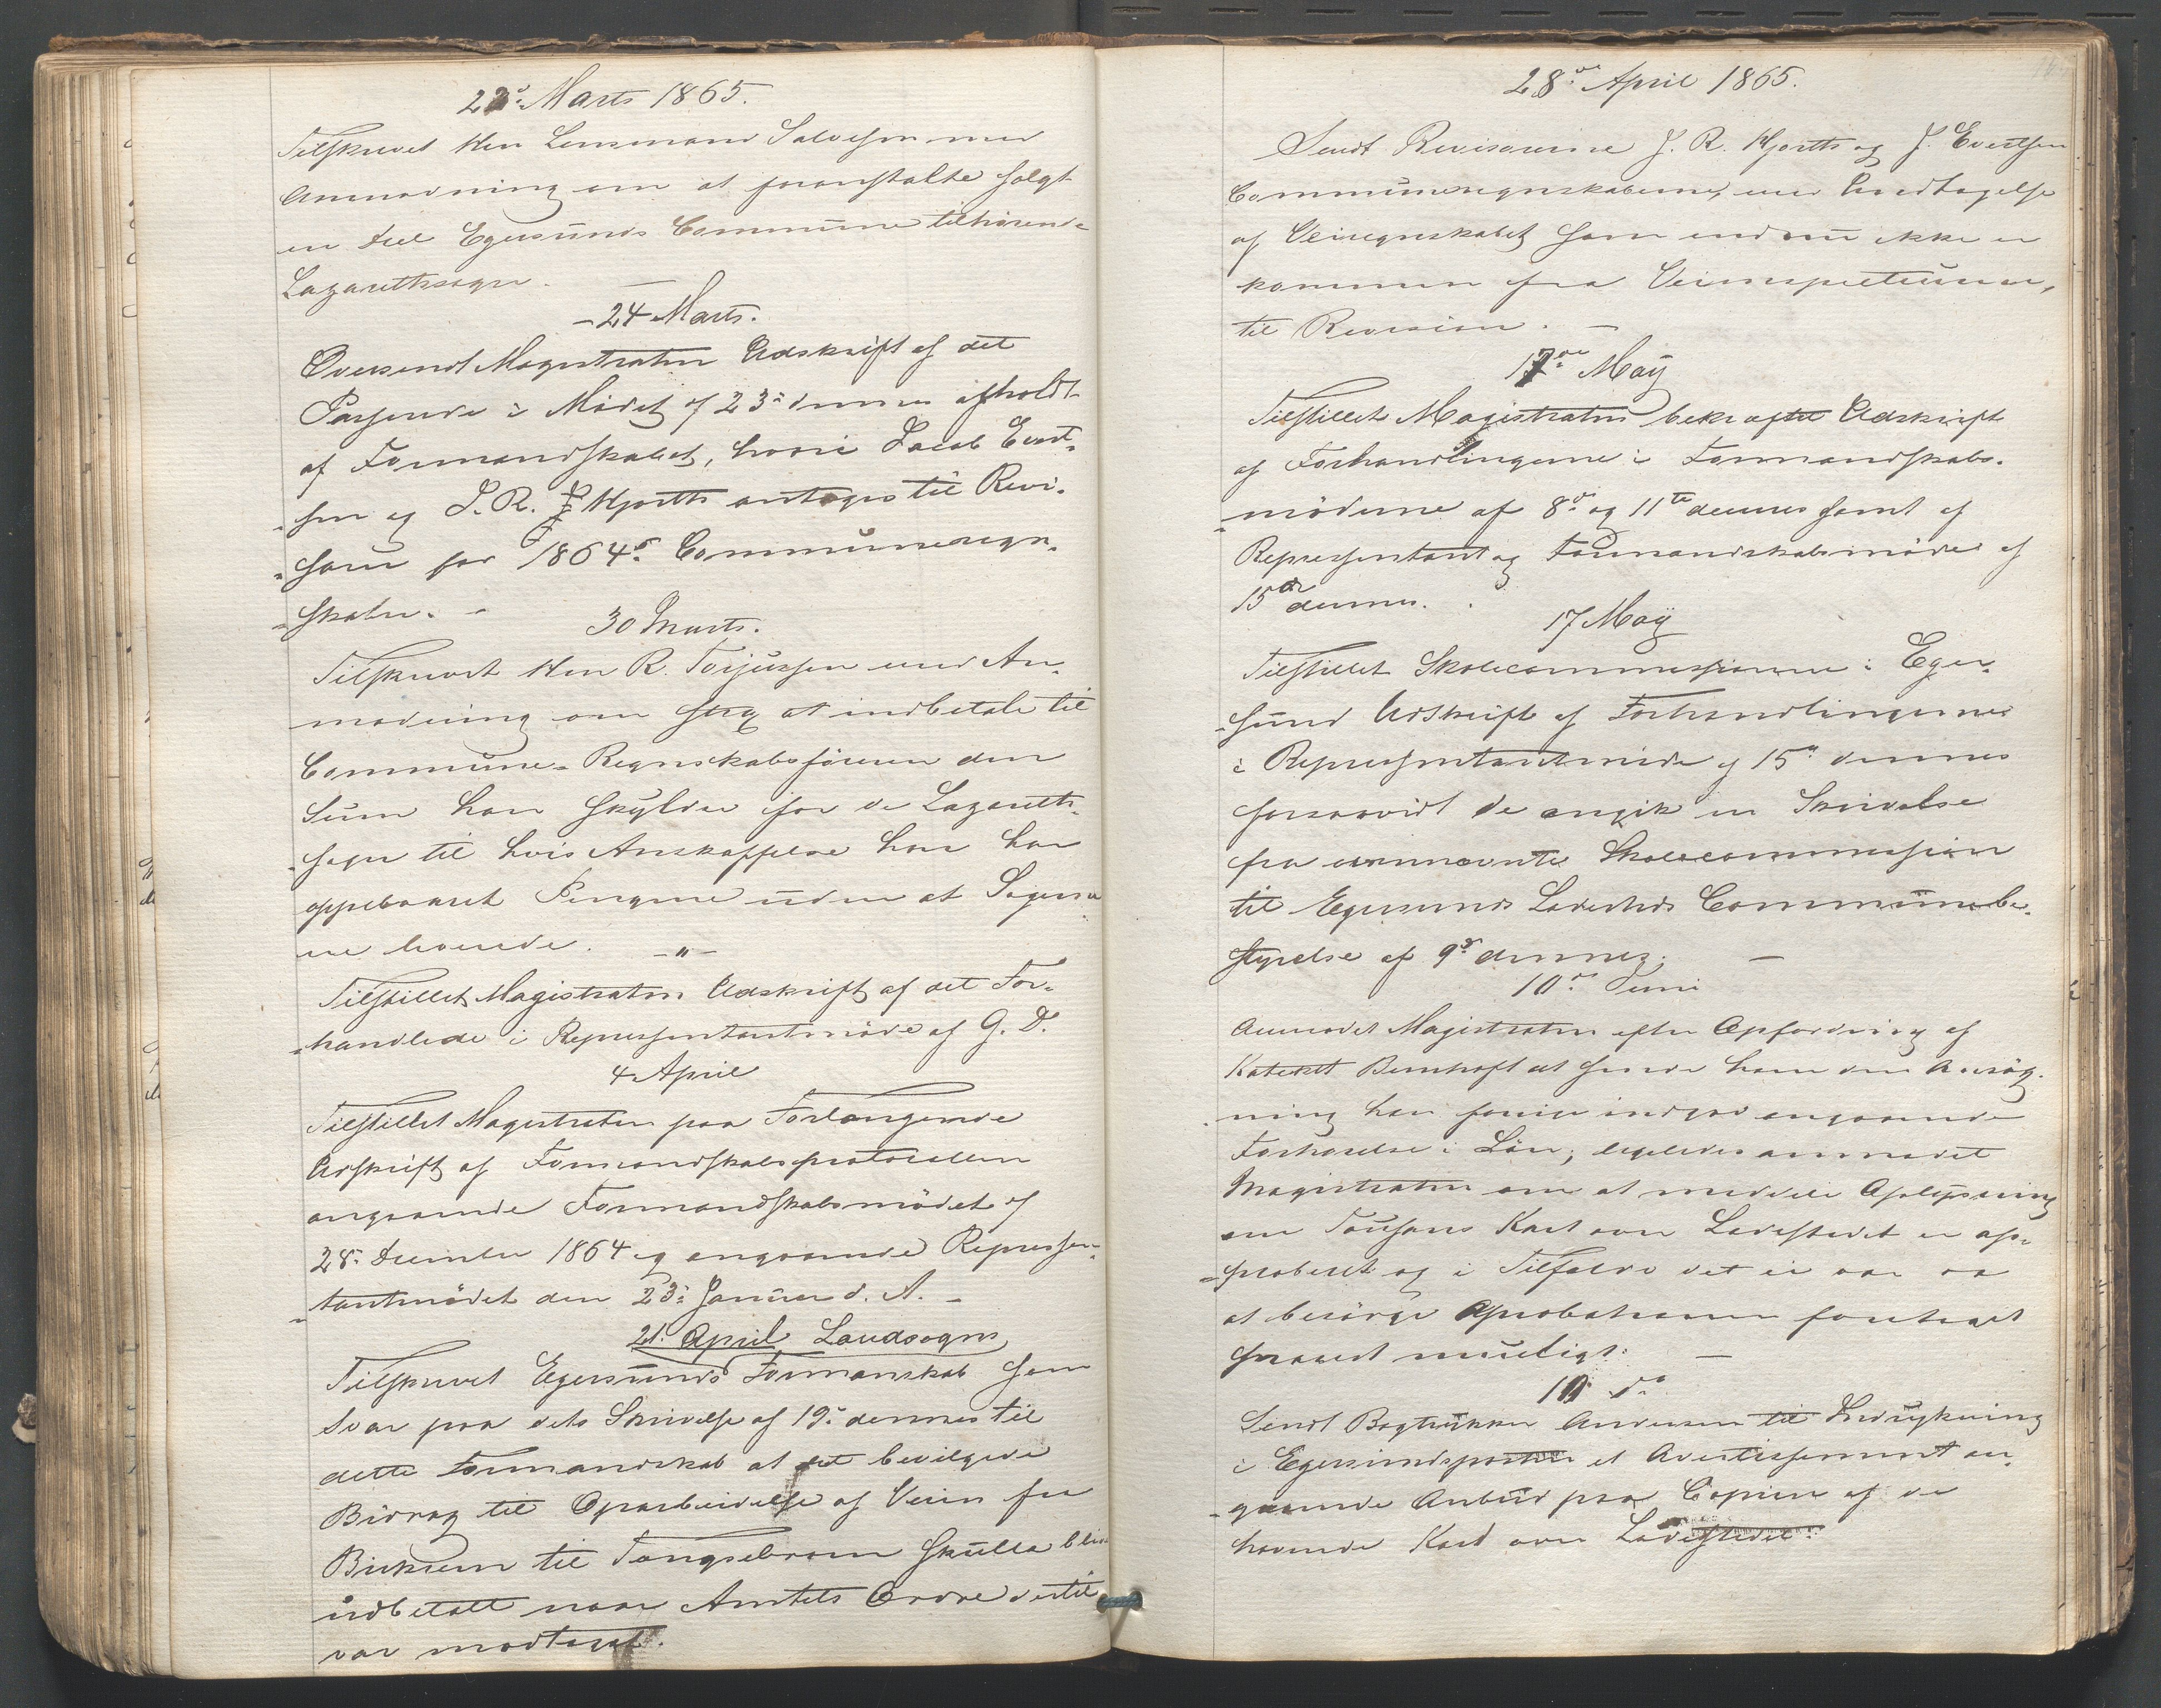 23de Marts 1865.
Tilskrevet Herr Lensmand Salvesen med
Anmodning om at foranstalte solgt
en Deel Egersunds Commune tilhørende
Lazarethsager. —
- 24 Marts.
Oversendt Magistraten Udskrift af det
Passerede i Mødet af 23de dennes afholdt
af Formandskabet, hvori Jacob Evert-
sen og J. R. Hjorth antoges til Revi-
sorer for 1864des Communeregn-
skaber. -
30 Marts.
Tilskrevet Herr R. Torjussen med An-
modning om strax at indbetale til
Commune-Regnskabsføreren den
Sum han skylder for de Lazareth-
sager til hvis Anskaffelse han har
oppebaaret Pengene uden at Sagerne
ere leverede. -"-
Tilstillet Magistraten Udskrift af det For-
handlede i Repræsentantmøde af G. D.
4 April
Tilstillet Magistraten paa Forlangende
Udskrift af Formandskabsprotocollen
angaaende Formandskabsmødet af
28de December 1864 og angaaende Repræsen-
tantmødet den 23de Januar d. A. -
21. April Landsogns
Tilskrevet Egersunds Formanskab som
Svar paa dets Skrivelse af 19de dennes til
dette Formandskab at det bevilgede
Bidrag til Oparbeidelse af Veien fra
til Tengsebroen skulle blive
udbetalt naar Amtets Ordre dertil
var modtaget.
28de April 1865.
Sendt Revisorerne J. R. Hjorth og J. Evertsen
Communeregnskaberne, med Undtagelse
af Veiregnskabet som endnu ikke er
kommen fra Veiinspecteurerne,
til Revision. -
17de May
Tilstillet Magistraten bekræftet Udskrift
af Forhandlingerne i Formandskabs-
møderne af 8de og 11te dennes samt af
Repræsentant og Formandskabsmøde af
15de dennes.
17 May
Tilstillet Skolecommissionen i Eger-
sund Udskrift af Forhandlingerne
i Repræsentantmøde af 15de dennes
forsaavidt de angik en Skrivelse
fra ermeldte Skolecommission
til Egersunds Ladesteds Communebe-
styrelse af 9de dennes. -
10de Juni
Anmodet Magistraten efter Opfordring af
Kateket Bernhoft at sende ham den Ansøg-
ning han forrige indgav angaaende
Forhøielse i Løn; ligeledes anmodet
Magistraten om at meddele Oplysning
om Kart over Ladestedet er ap-
proberet og i Tilfælde det ei var
at besørge Aprobationen foretaget
snarest mueligt. -
10 do
Sendt Bogtrykker Andersen til Indrykning
i Egersundsposten et Avertissement an-
gaaende Anbud paa Copien af de
havende Kart over Ladestedet.